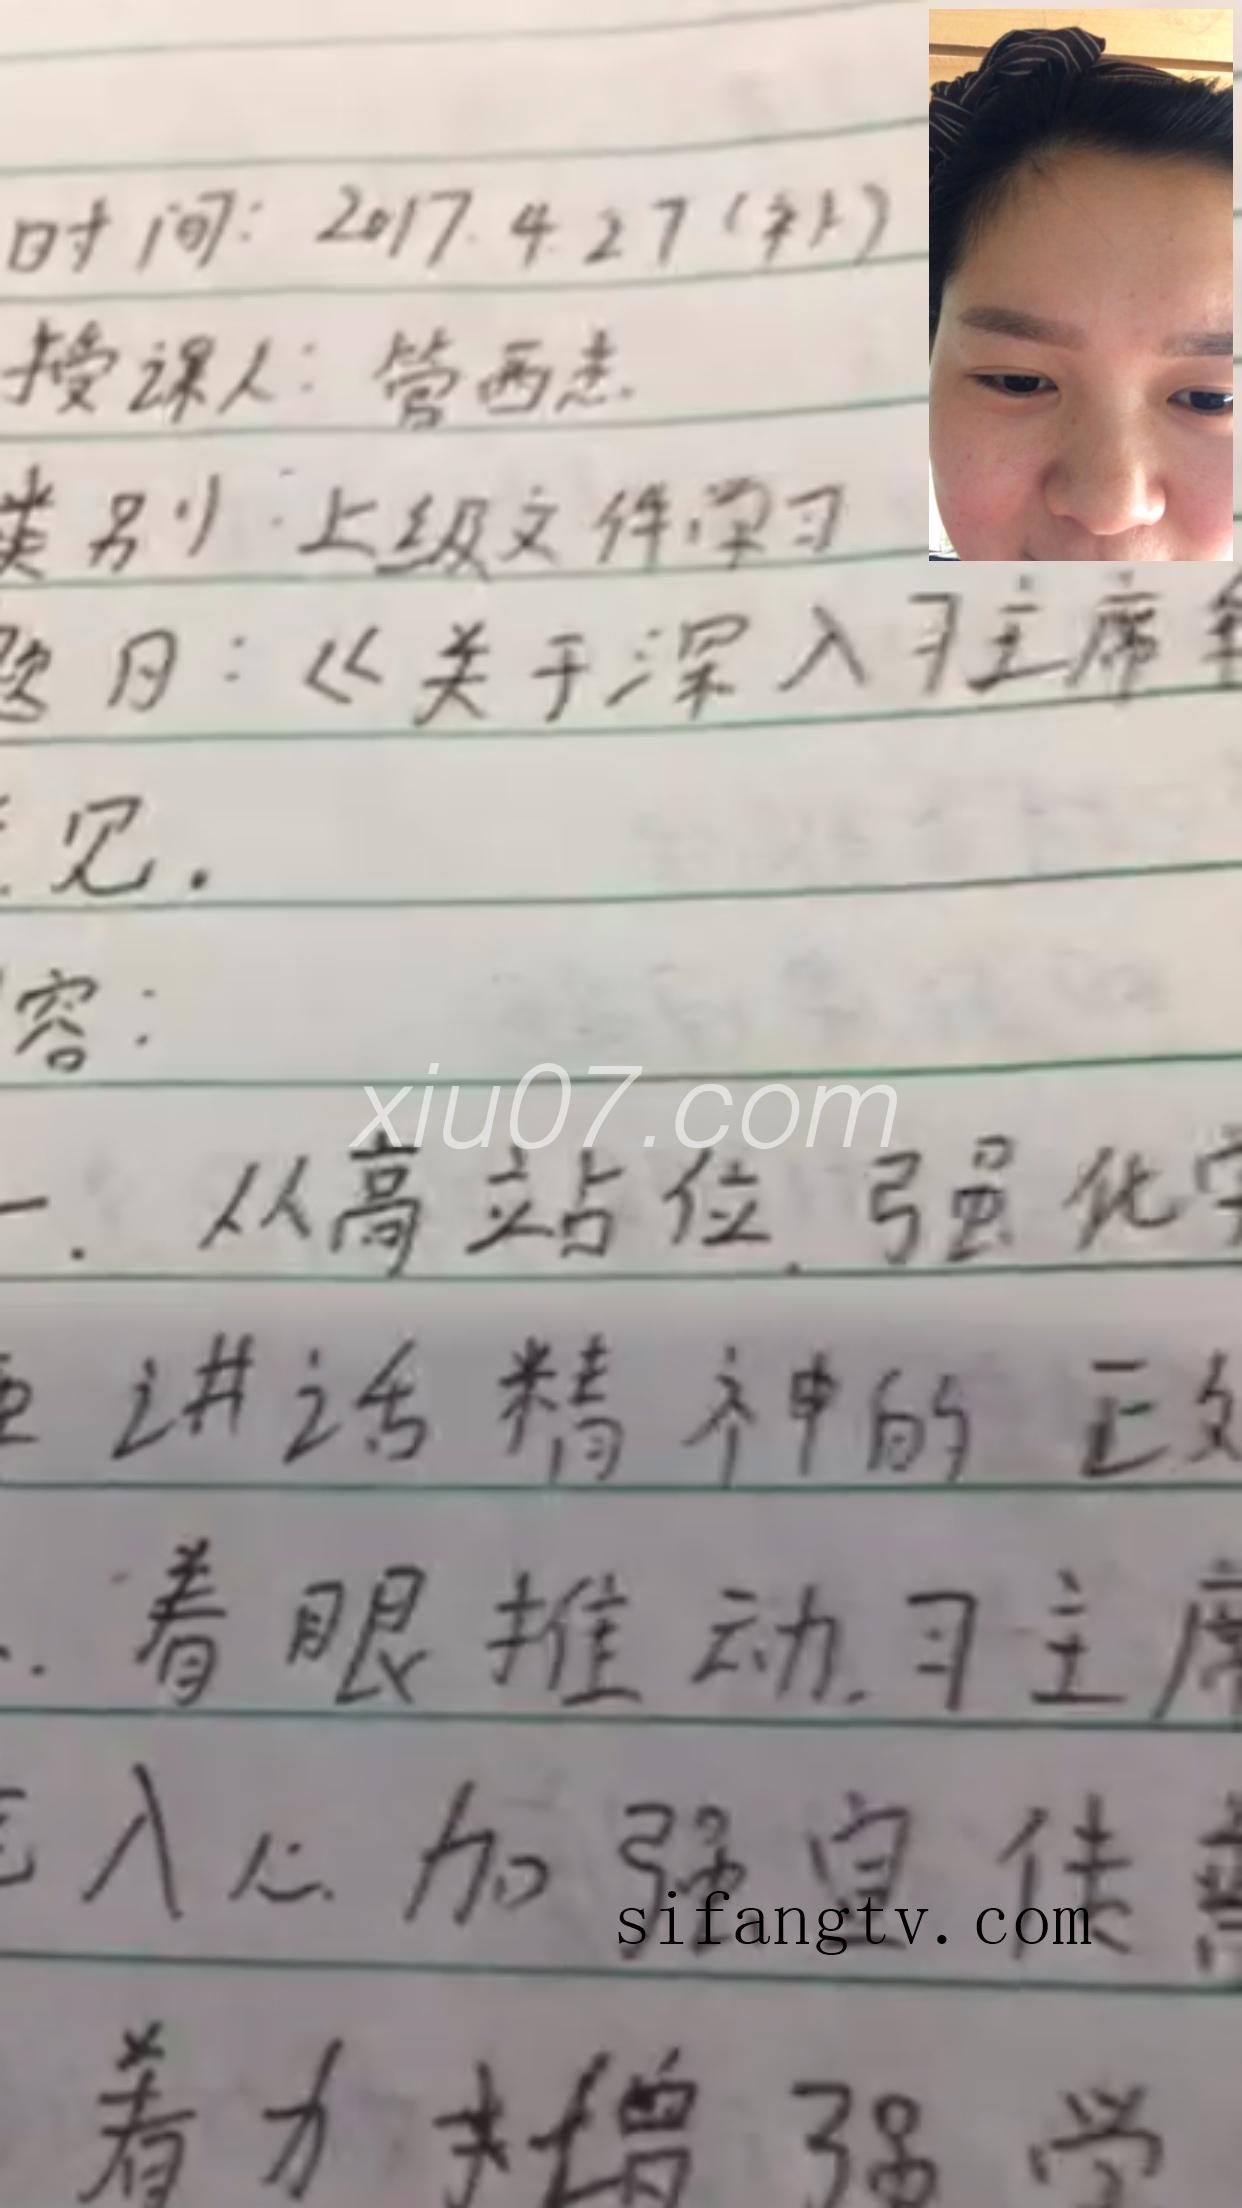 时间: 2017.4.27(补)
授课人: 管西志
类别: 上级文件学习
题目:《关于深入习主席
见.
容:
xiu07.com
一. 从高站位. 强化学
讲话精神的正
着眼推动.习主席
入心.加强宣传
sifangtv.com
着力 增强学